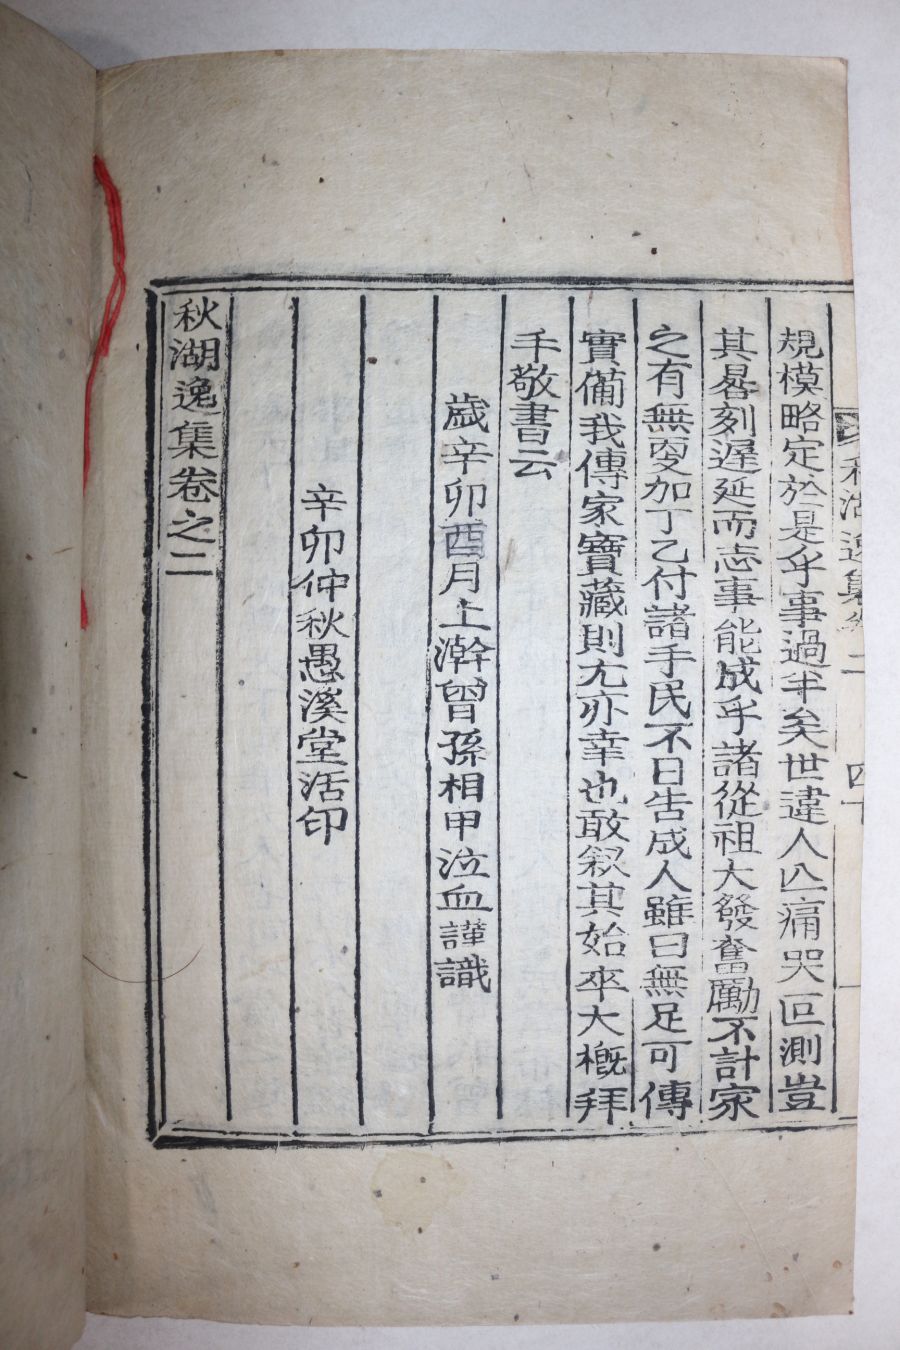 秋湖逸集卷之二 四十
規模略定於是乎事過半矣世違人亾痛哭叵測豈
其晷刻遲延而志事能成乎諸從祖大發奮勵不計家
之有無夏加丁乙付諸手民不日告成人雖曰無足可傳
實備我傳家寶藏則尤亦幸也敢叙其始卒大槪拜
手敬書云
歲辛卯酉月上澣曾孫相甲泣血謹識
辛卯仲秋愚溪堂活印
秋湖逸集卷之二